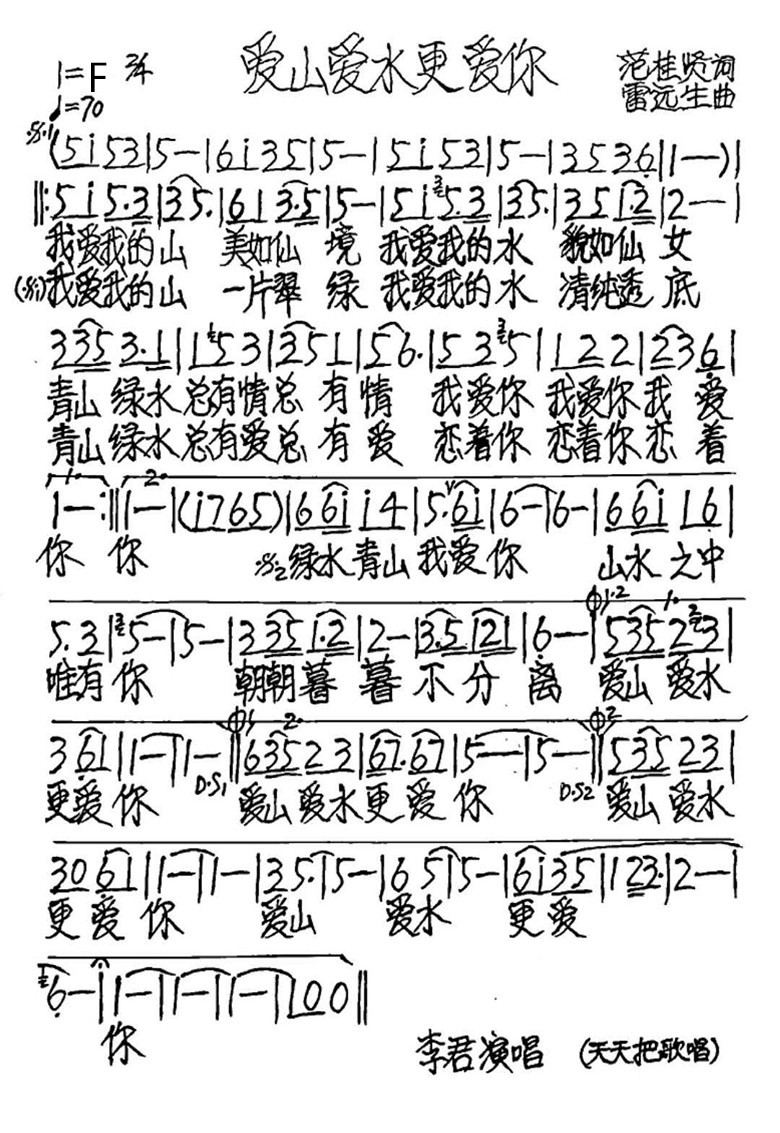 爱山爱水更爱你
1=F 2/4
♩=70
范桂贤词
雷远生曲
(5i 53|5—|6i 35|5—|5i 53|5—|35 36|1—)|
‖:5i 5·3|35·|61 3·5|5—|5i 5·3|35·|35 12|2—|
我爱我的山 美如仙 境 我爱我的水 貌如仙 女
(S1)我爱我的山 一片翠 绿 我爱我的水 清纯透 底
335 3·1|1 53|35 1|5 6·|5 3 5|12 2|23 6|
青山 绿水 总有情总 有 情 我 爱你 我爱你我 爱
青山 绿水 总有爱总 有 爱 恋着你 恋着你恋 着
1. 2.
1—:‖1—|(i765)|66i i4|5·6i|6—|6—|66i 16|
你 你 S2绿水青山 我爱你 山水 之中
5·3|5—|5—|335 1·2|2—|3·5 121|6—|535 23|
唯有 你 朝朝暮 暮 不 分 离 爱山 爱水
3 61|1—|1—‖635 23|67·67|5—|5—‖535 23|
更爱 你 D.S1 爱山 爱水更 爱 你 D.S2 爱山 爱水
30 61|1—|1—|35·|5—|6 5|5—|6i35|123·|2—|
更 爱 你 爱山 爱水 更 爱
6—|1—|1—|1—|100‖
你
李君演唱 (天天把歌唱)